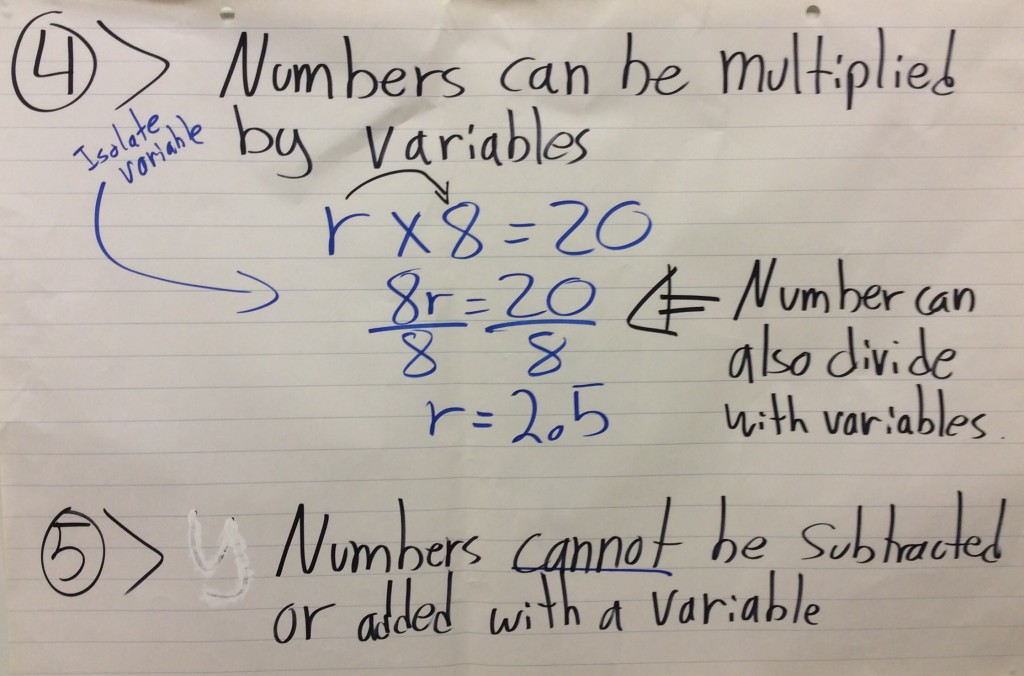 4> Numbers can be multiplied
by variables
Isolate
variable
r x 8 = 20
8r = 20
8 8
r = 2.5
Number can
also divide
with variables.
5> y Numbers cannot be subtracted
or added with a variable